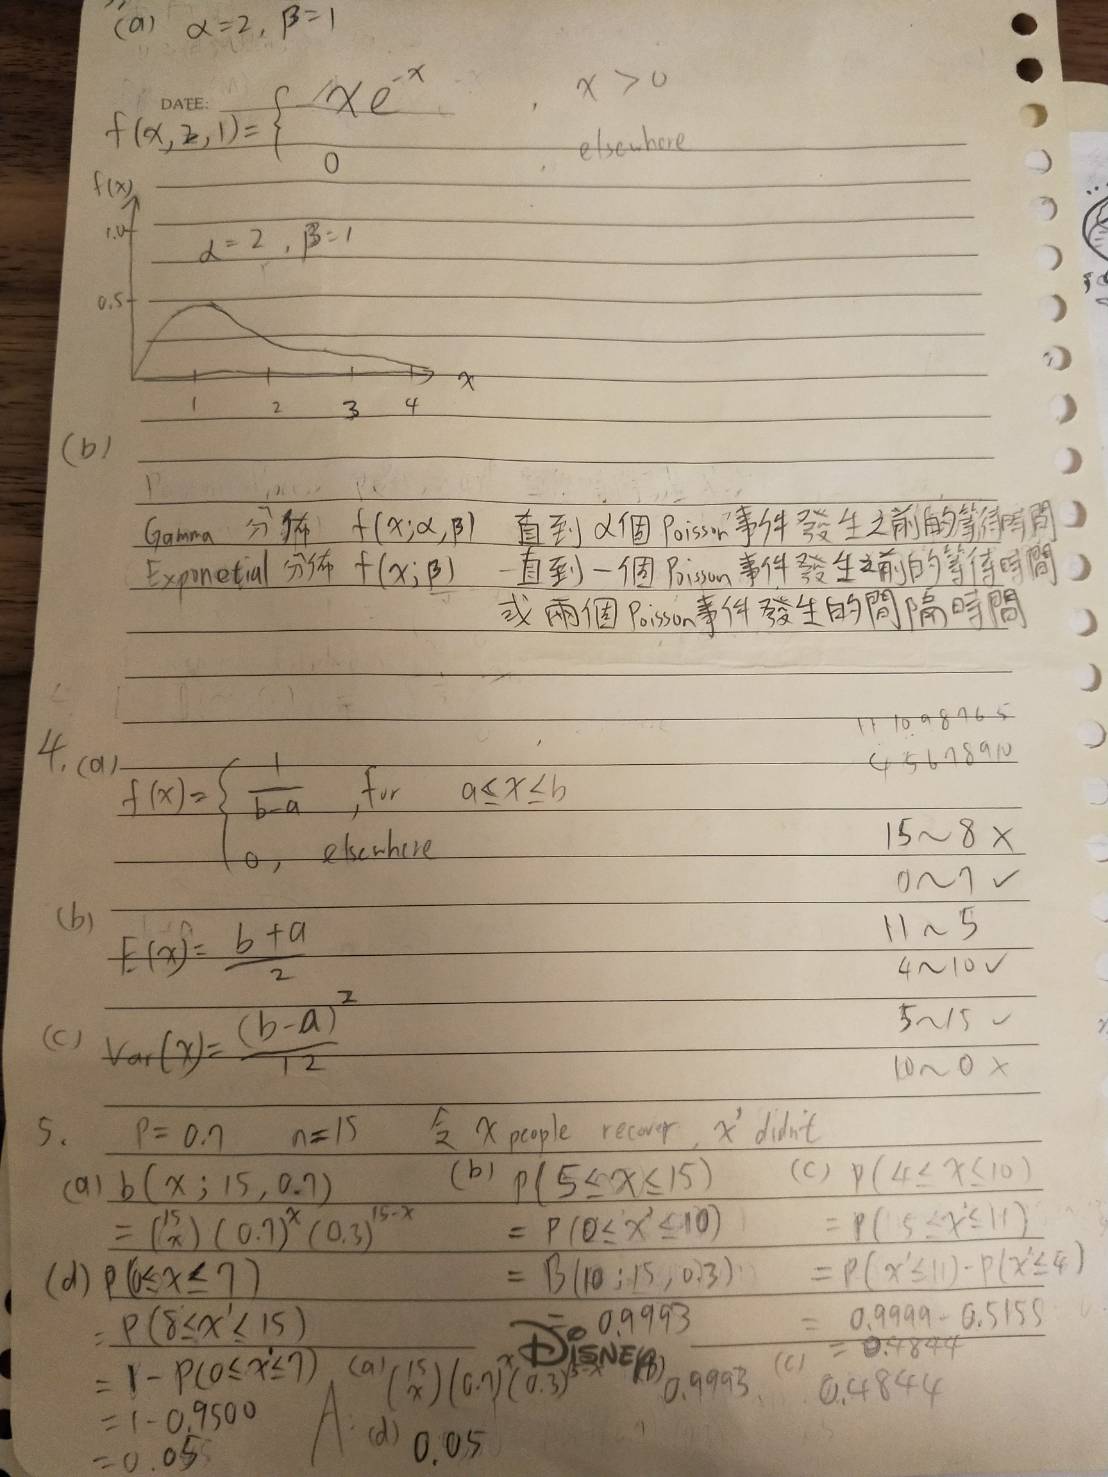 (a) α=2, β=1
DATE:
f(x,2,1)={ xe^-x , x>0
0 , elsewhere
f(x)
1.0
α=2, β=1
0.5
x
1 2 3 4
(b)
Gamma 分佈 f(x;α,β) 直到α個Poisson事件發生之前的等待時間
Exponetial 分佈 f(x;β) 一直到一個Poisson事件發生之前的等待時間
或兩個Poisson事件發生的間隔時間
11 10 9 8 7 6 5
4 5 6 7 8 9 10
4. (a)
f(x)={ 1/(b-a) , for a≤x≤b
0, elsewhere
15~8 ×
0~7 ✓
(b) E(x)= (b+a)/2
11~5
4~10 ✓
(c) Var(x)= (b-a)^2/12
5~15 ✓
10~0 ×
5. P=0.7 n=15 令 x people recover, x' didn't
(a) b(x;15,0.7) (b) P(5≤x≤15) (c) P(4≤x≤10)
=(15 x)(0.7)^x(0.3)^15-x =P(0≤x'≤10) =P(5≤x'≤11)
(d) P(0≤x≤7) =B(10;15,0.3) =P(x'≤11)-P(x'≤4)
=P(8≤x'≤15) =0.9993 =0.9999-0.5155
DISNEY
=1-P(0≤x'≤7) =0.4844
=1-0.9500
=0.05
A: (a) (15 x)(0.7)^x(0.3)^15-x (b) 0.9993 (c) 0.4844
(d) 0.05